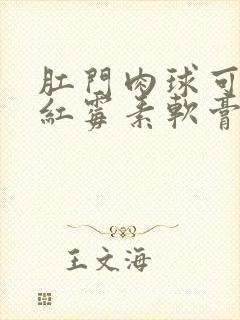 肛門肉球可
紅霉素軟膏
王文海